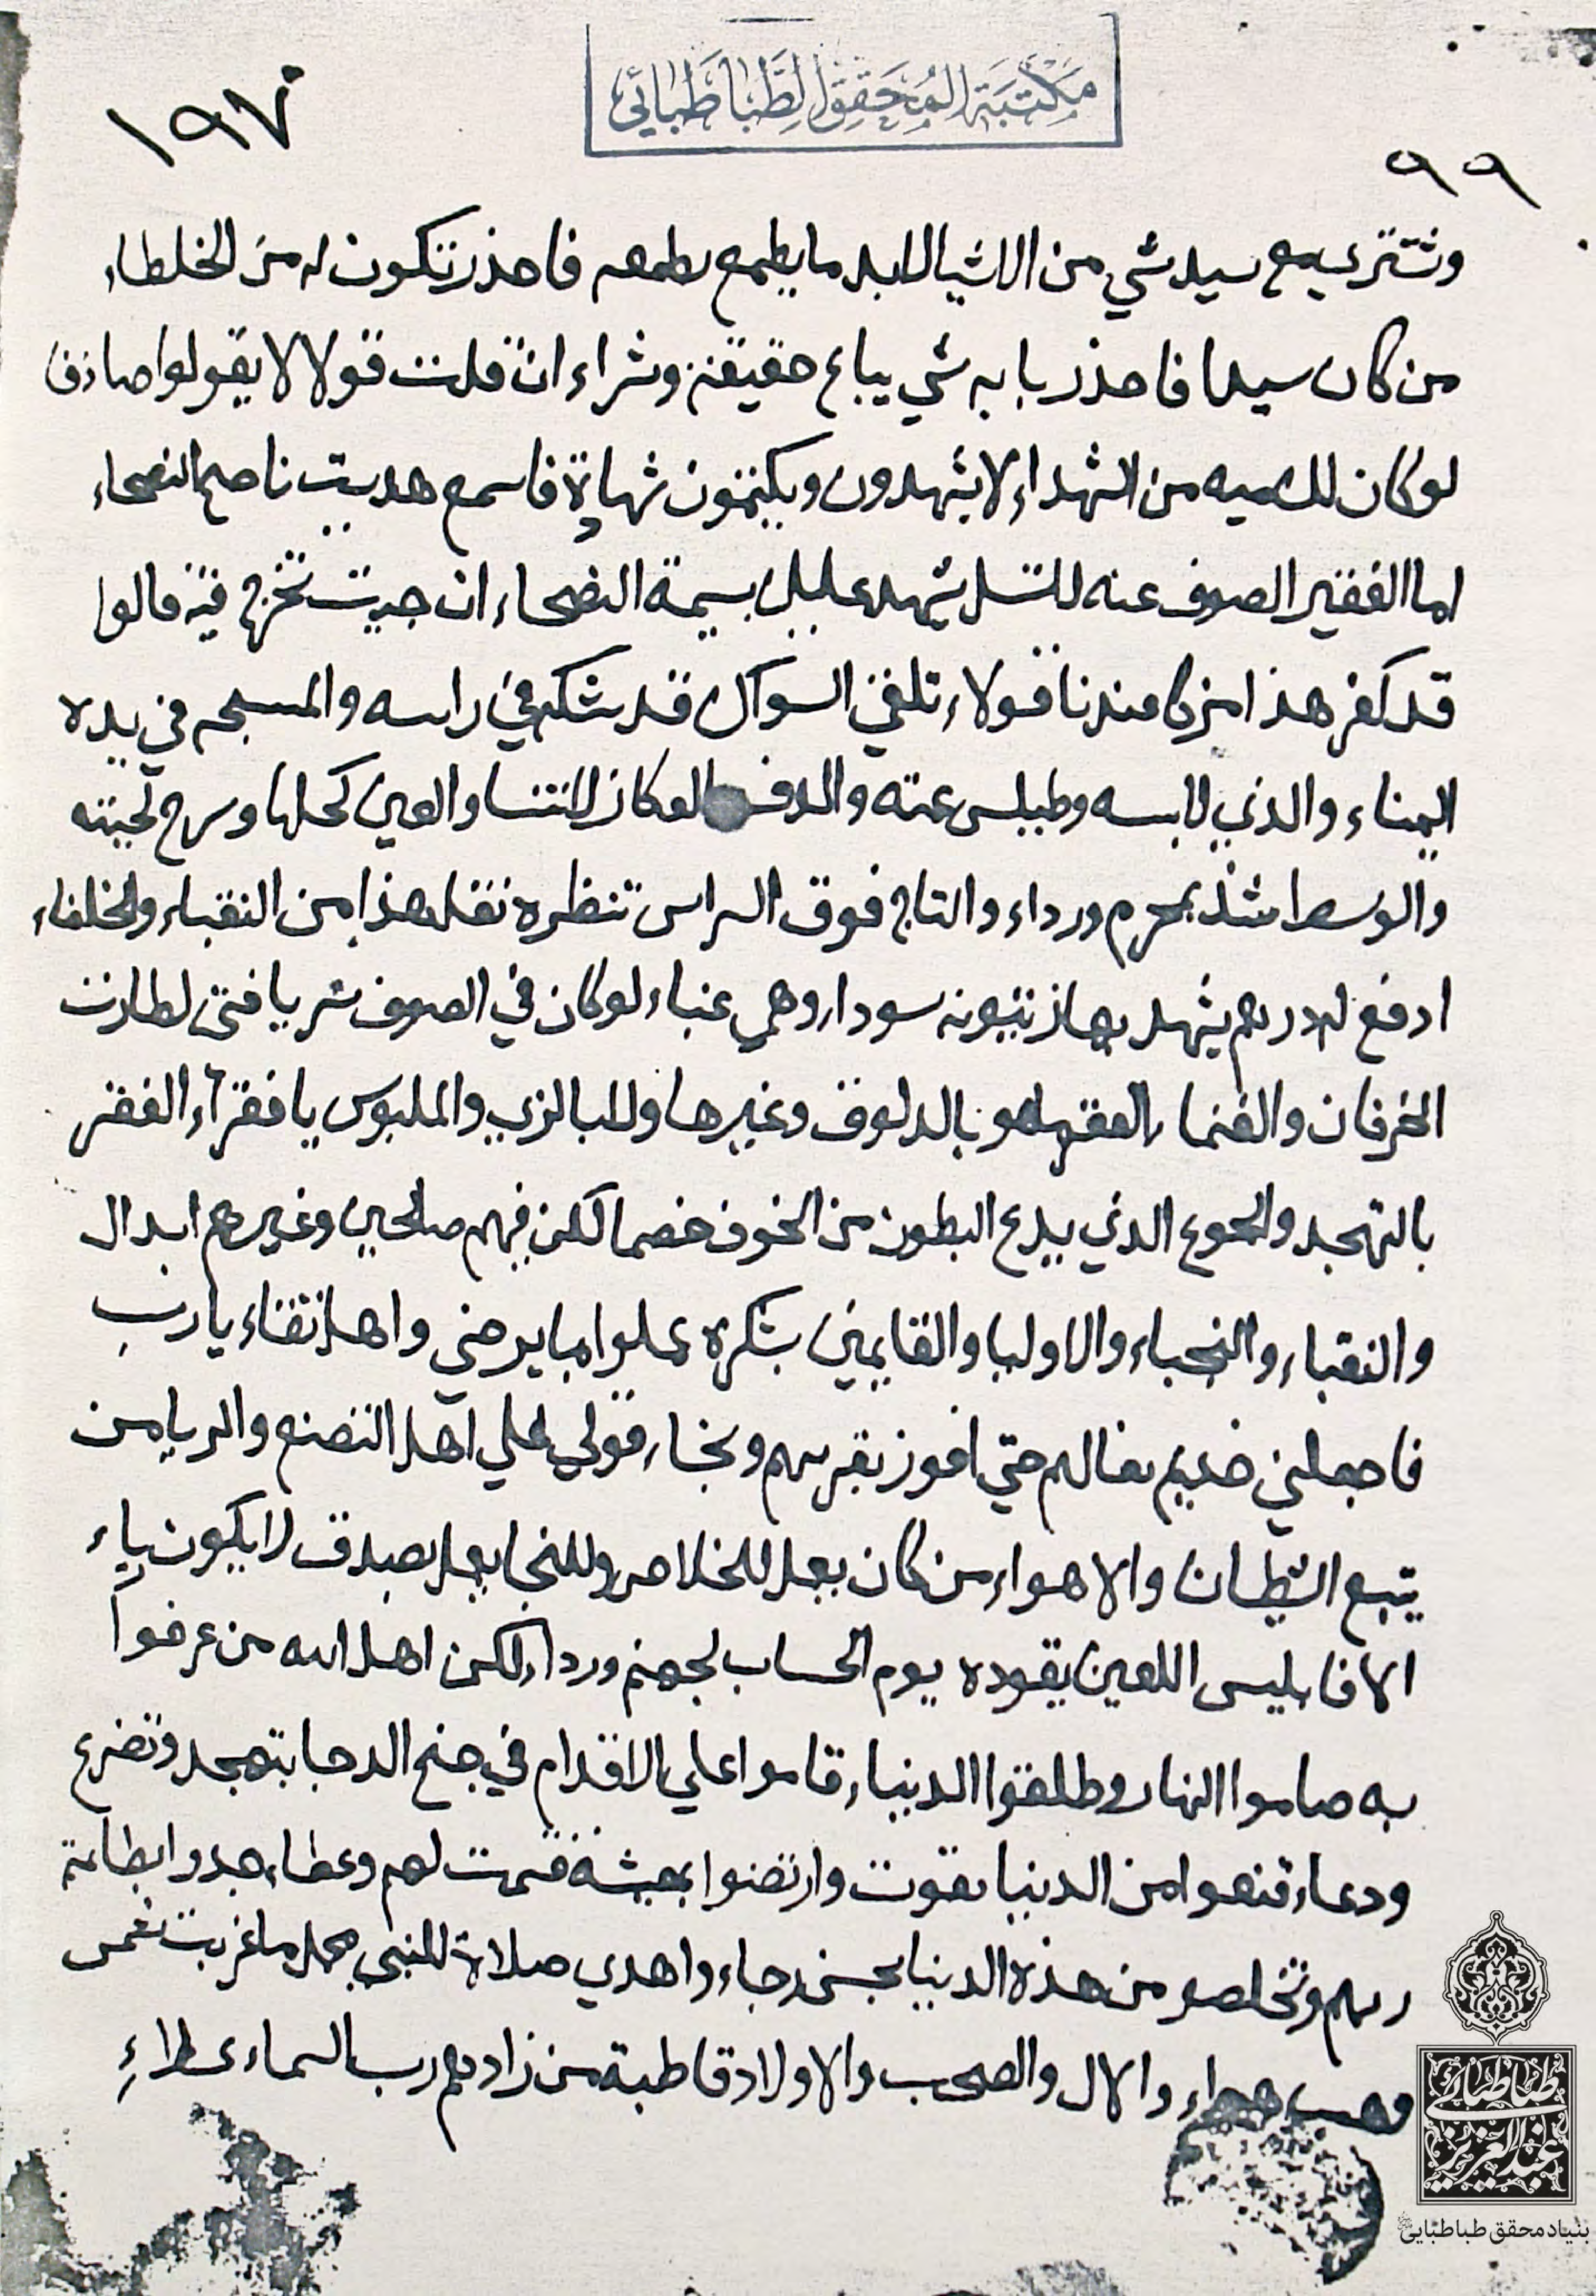 مكتبة المحقق الطباطبائي
١٩٧
٩٩
وتشتري بيع سيد شي من الاشيا لابد ما يطمع بطمعه فاحذر تكون له من الخلطاء
من كان سيدا فاحذر بابه شي يباع حقيقة وشراء ان قلت قولا لا يقولوا صادق
لو كان لك ميه من الشهداء لا يشهدون ويكتمون شهادة فاسمع هديت ناصح النصحاء
اما الفقير الصوف عنه لا تسل يشهد عليك بسيمة النصحاء ان جيت تخرج فيه قالوا
قد كفر هذا من كا عندنا قولاء تلقي السواك قد شكه في راسه والمسبحه في يده
اليمناء والذي لابسه وطيلس عمته والدف والعكاز لا تنسا والعين كحلها وسرح لحيته
والوسط شد بمحرم ورداء والتاج فوق الراس تنظره تقل هذا من النقباء والخلفاء
ادفع له درهم يشهد بها زيتونه سوداء وهي عنباء لو كان في الصوف سر يا فتى لطارت
الخرفان والغنما الفقر ماهو بالدلوق وغيرها ولا بالزي والملبوس يا فقراء الفقر
بالتهجد والجوع الذي يدع البطون من الخوف خمصا لكن فيهم صالحين وغيرهم ابدال
والنقباء والنجباء والاوليا والقايمين بشكره عملوا بما يرضي واهل تقاء يا رب
فاجعلني خديم نعالهم حتي افوز بقربهم ونجاء قولي علي اهل التصنع والريا من
يتبع الشيطان والاهواء من كان يعمل للخلاص وللنجا يعمل بصدق لا يكون رياء
الا فابليس اللعين يقوده يوم الحساب لجهنم ورداء لكن اهل الله من عرفوا
به صاموا النهار وطلقوا الدنياء قاموا علي الاقدام في جنح الدجا بتهجد وتضرع
ودعاء قنعوا من الدنيا بقوت وارتضوا بمعيشة قسمت لهم وعطاء جدوا بطاعة
ربهم وتخلصو من هذه الدنيا بحسن رجاء واهدي صلاة للنبي محمد ما غربت شمس
وهب هواء والال والصحب والاولاد قاطبة من زادهم رب السماء عطاء
طباطبائي
عبدالعزيز
بنیاد محقق طباطبایی